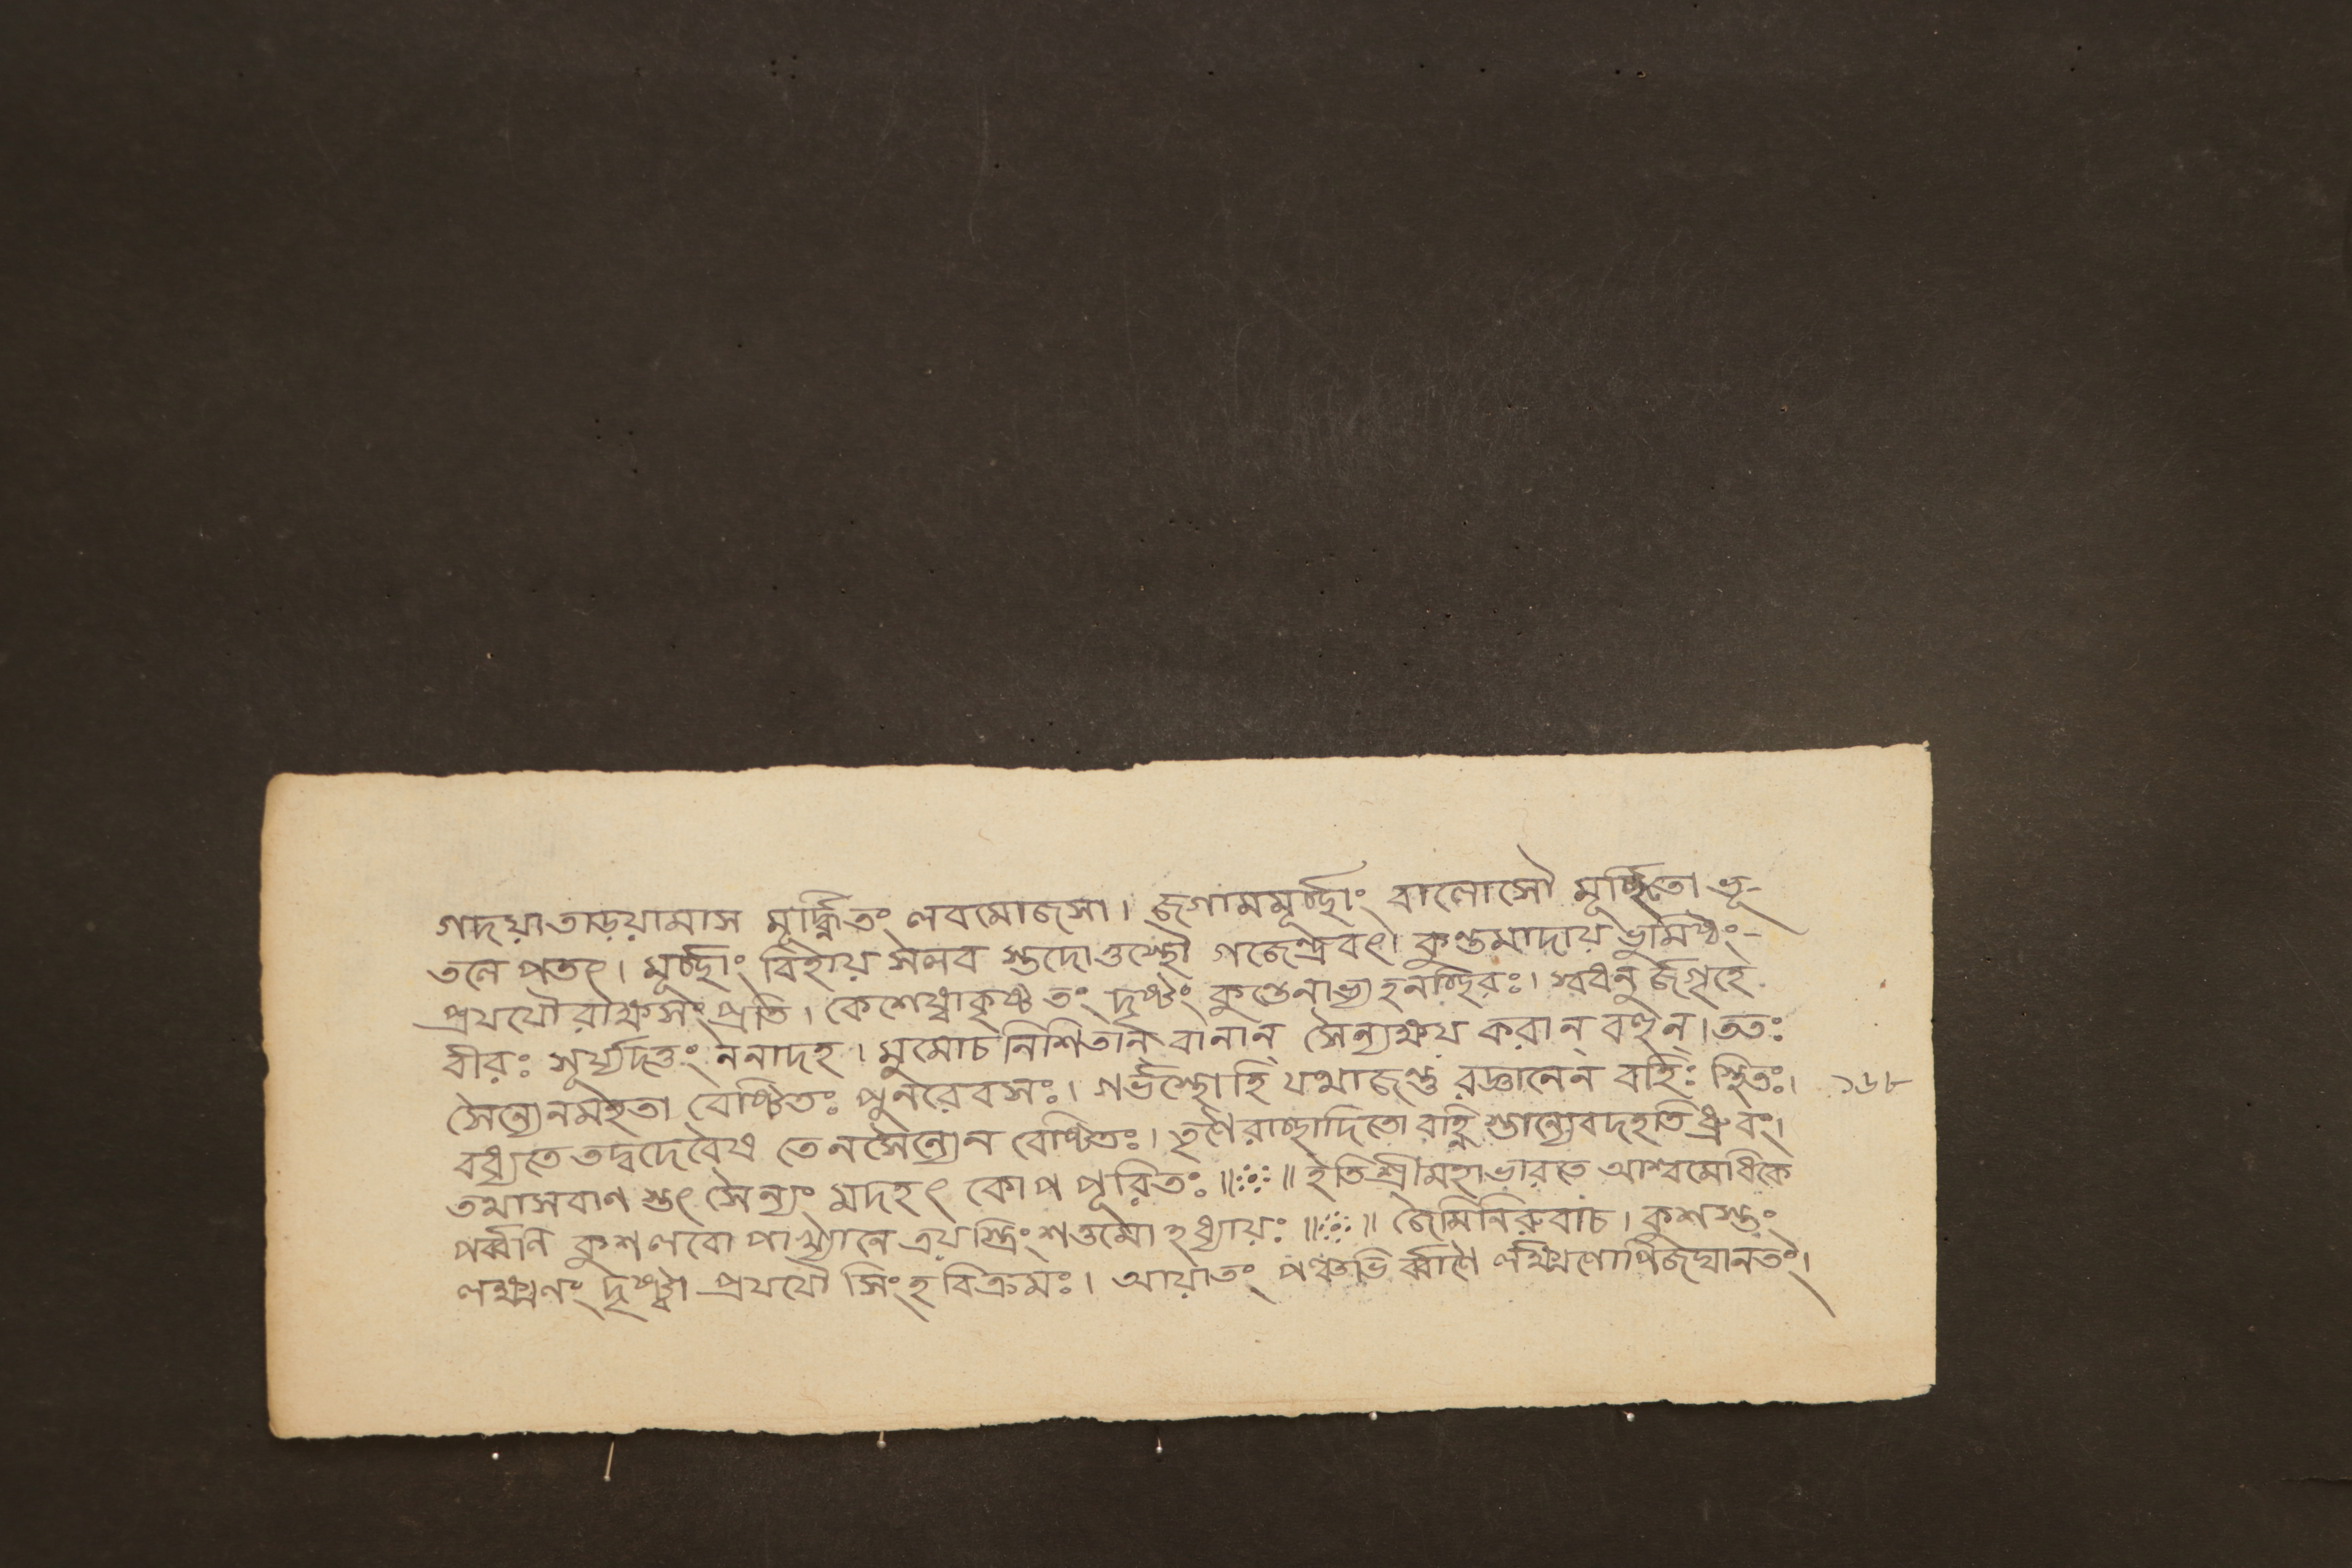 গদয়া তাড়য়ামাস মূর্দ্ধ্নি তং লবমোজসা। জগামমূর্চ্ছাং বালোসৌ মূর্চ্ছিতো ভূ-
তলে পতৎ। মূর্চ্ছাং বিহায় সলব স্তদোত্তস্থৌ গজেন্দ্রবৎ। কুণ্ডমাদায় ভূমিষ্ঠং-
প্রযযৌ রাক্ষসং প্রতি। কেশেষ্বাকৃষ্ট তং দৃষ্টং কুণ্ডেনাভ্যহনচ্ছিরঃ। স্বধনু র্জগৃহে
বীরঃ সূর্য্যদত্তং ননাদহ। মুমোচ নিশিতান্ বানান্ সৈন্যক্ষয় করান্ বহুন্। ততঃ
সৈন্যেনমহতা বেষ্টিতঃ পুনরেবসঃ। গর্ভস্থোহি যথাজন্তু রজ্ঞানেন বহিঃ স্থিতঃ। ১৬৮
বধ্যতে তদ্বদেবৈষ তেনসৈন্যেন বেষ্টিতঃ। তৃণৈ রাচ্ছাদিতো বহ্নি স্তান্যেবদহতি ধ্রুবং।
তথাসবাণ স্তৎ সৈন্যং মদহৎ কোপ পূরিতঃ॥ঃ॥ ইতি শ্রীমহাভারতে আশ্বমেধিকে
পর্ব্বণি কুশলবো পাখ্যানে ত্রয়স্ত্রিংশত্তমো হধ্যায়ঃ॥ঃ॥ জৈমিনিরুবাচ। কুশস্তং
লক্ষ্মণং দৃষ্ট্বা প্রযযৌ সিংহ বিক্রমঃ। আয়াতং পঞ্চভি র্ব্বাণৈ র্লক্ষ্মণোপিজঘানতং।